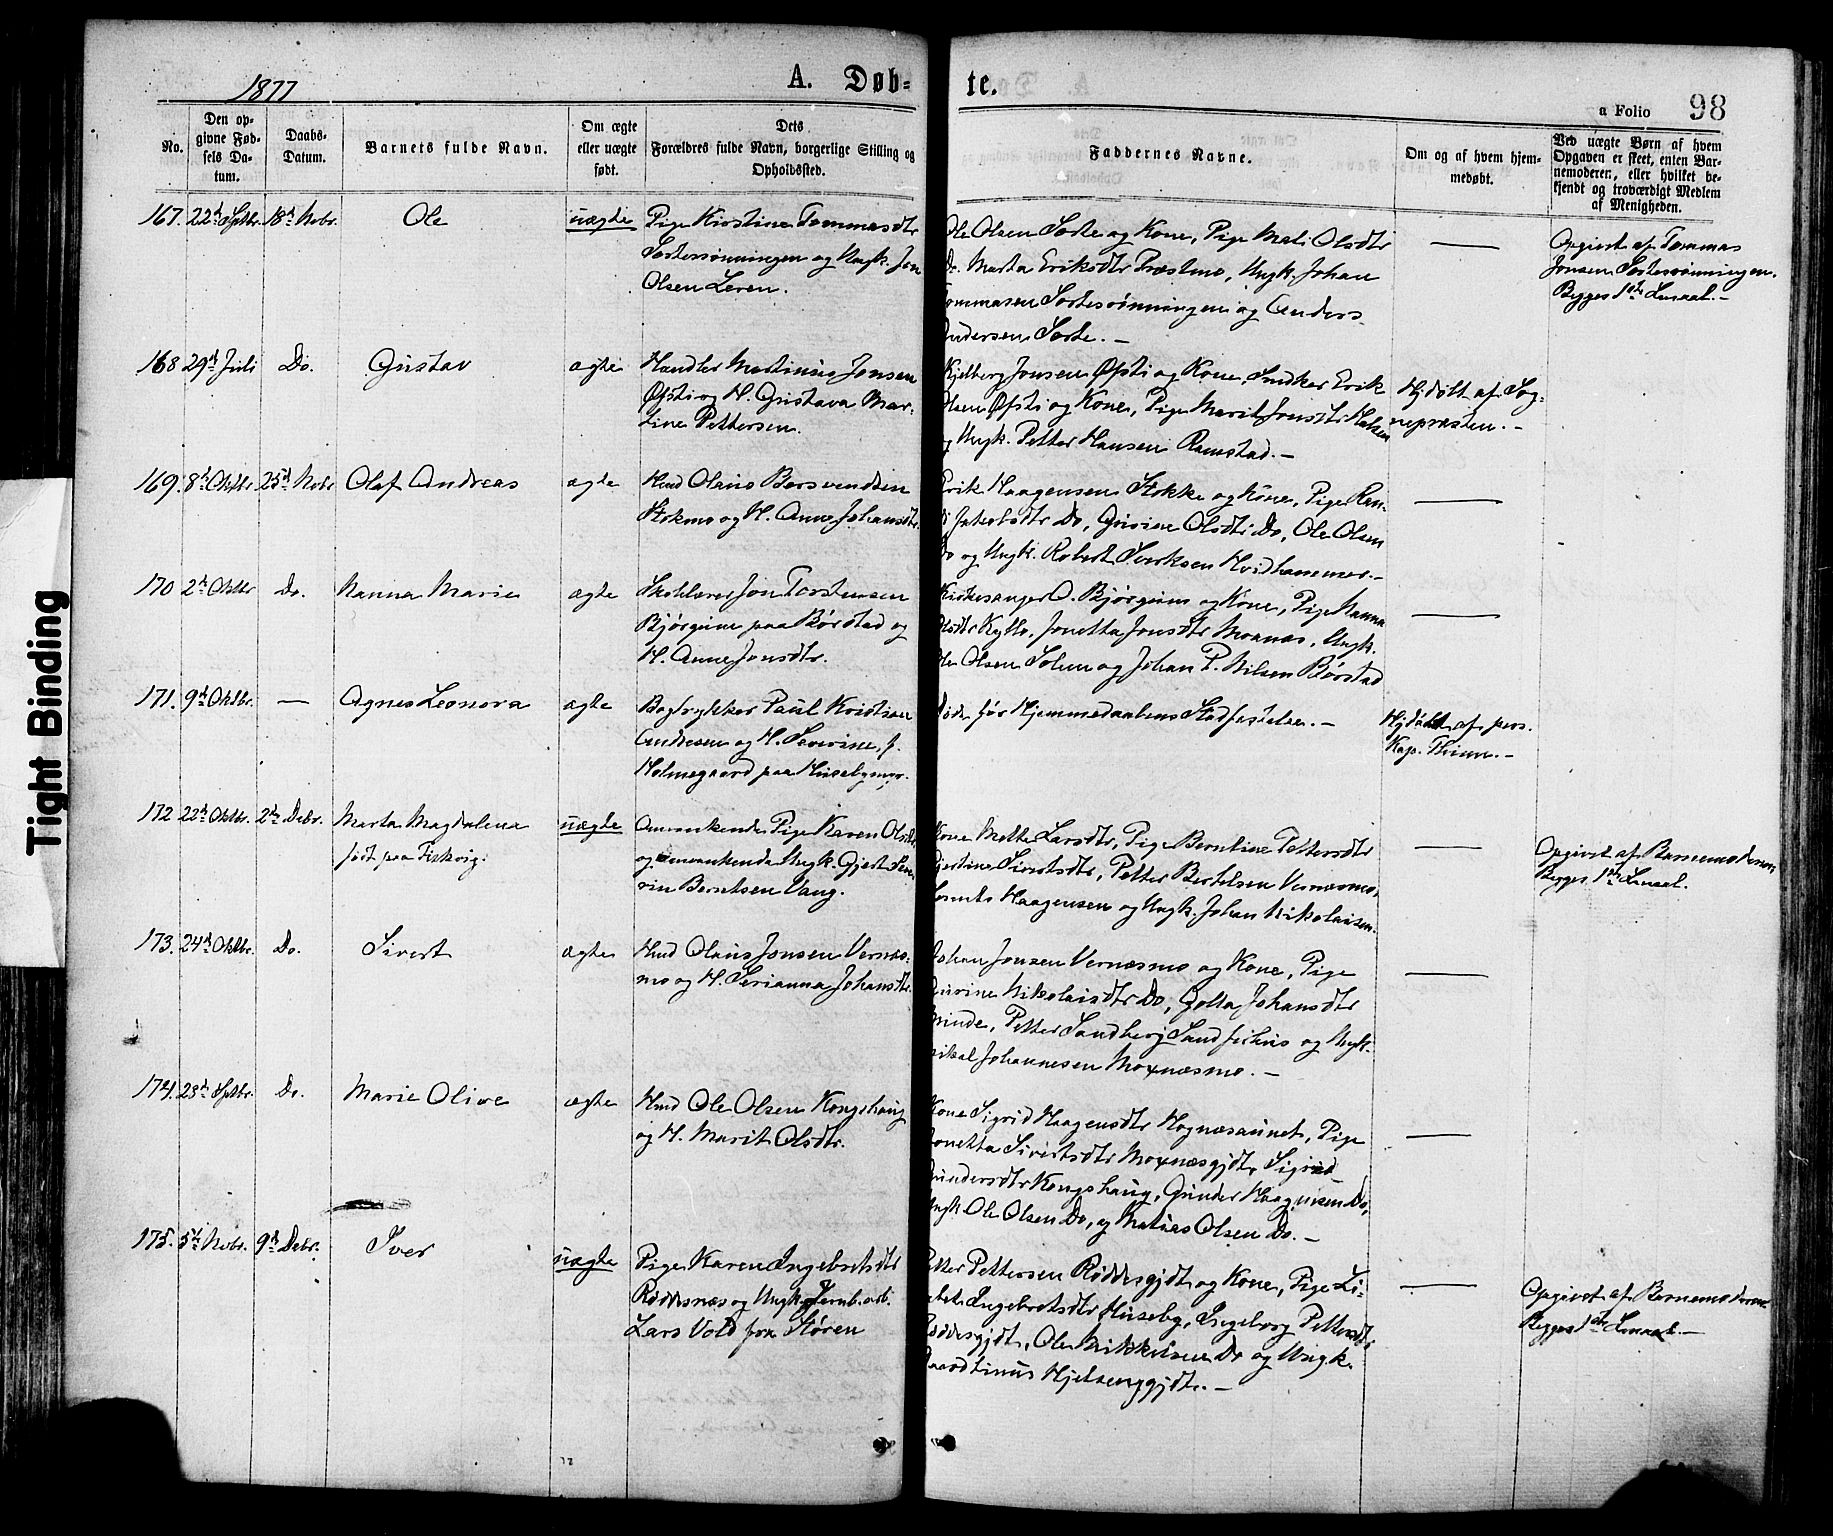 1877
A. Døb-
te.
a Folio 98
No.
Den op-
givne Fød-
sels Da-
tum.
Daabs-
Datum.
Barnets fulde Navn.
Om ægte
eller uægte
født.
Dets
Forældres fulde Navn, borgerlige Stilling og
Opholdssted.
Faddernes Navne.
Om og af hvem hjem-
medøbt.
Ved uægte Børn af hvem
Opgaven er skeet, enten Bar-
nemoderen, eller hvilket be-
kjendt og troværdigt Medlem
af Menigheden.
167. 22d Sptbr. 18d Novbr. Ole uægte
Pige Kirstine Tommasdtr
Sortesrønningen og Ungk. Jon
Olsen Leren.
Ole Olsen Sorte og Kone, Pige Mali Olsdtr
Do. Marta Eriksdtr Præstmo, Ungk. Johan
Tommasen Sortesrønningen og Anders
Andersen Sorte. —
Opgivet af Tommas
Jonsen Sortesrønningen.
Begges 1ste Lmaal. —
168 29d Juli Do. Gustav ægte
Handler Martinus Jonsen
Øfsti og H. Gustava Mar-
tine Pettersen.
Kjelberg Jonsen Øfsti og Kone, Snedker Erik
Olsen Øfsti og Kone, Pige Marit Jonsdtr Halsen
og Ungk. Petter Hansen Ramstad. —
Hjdøbt af Sog-
nepræsten. —
169. 8d Oktbr. 25d Novbr Olaf Andreas ægte
Hmd Olaus Børsvendsen
Stokmo og H. Anne Johansdtr.
Erik Haagensen Stokke og Kone, Pige Ran-
di Jakobsdtr Do, Guruine Olsdtr Do, Ole Olsen
Do og Ungk. Robert Sverksen Hvidhammer. —
170 2d Oktbr Do. Nanna Marie ægte
Skolelærer Jon Torstensen
Bjørgum paa Børstad og
H. Anne Jonsdtr.
Kirkesanger O. Bjørgum og Kone, Pige Nanna
Olsdtr Kyllo, Jonetta Jonsdtr Moanæs, Ungk.
Ole Olsen Solem og Johan P. Nilsen Børstad
171. 9d Oktbr. — Agnes Leonora ægte
Bogtrykker Paul Kristian
Andresen og H. Severine, f.
Holmegaard paa Husebymoe.
Døde før Hjemmedaabens Stadfæstelse. —
Hjdøbt af pers.
Kap. Thieme. —
172 22d Oktbr. 2d Decbr. Marta Magdalena
født paa Fiskvig.
uægte
Omvankende Pige Karen Olsdtr
og omvankende Ungk. Gjert Seve-
rin Berntsen Vang.
Kone Mette Larsdtr, Pige Berntine Pettersdtr
Gjertine Sivertsdtr, Petter Bertelsen Vernæsmo,
Lorents Haagensen og Ungk. Johan Nikolaisen.
Opgivet af Barnemoderen,
Begges 1ste Lmaal.
173. 24d Oktbr. Do. Sivert ægte
Hmd Olaus Jonsen Vernæs-
mo og H. Serianna Johansdtr.
Johan Jonsen Vernæsmo og Kone, Pige
Gurine Nikolaisdtr Do, Golla Johansdtr
Minde, Petter Sandberg Sandferhus og Ungk.
Mikal Johannesen Moxnæsmo. —
174. 23d Sptbr. Do. Marie Olive ægte
Hmd Ole Olsen Kongshaug
og H. Marit Olsdtr.
Kone Sigrid Haagensdtr Hognæsaunet, Pige
Jonetta Sivertsdtr Moxnæsgjdt, Sigrid
Gundersdtr Kongshaug, Gunder Haagensen Do,
Ungk. Ole Olsen Do, og Matias Olsen Do. —
175. 5d Novbr. 9d Decbr. Iver uægte
Pige Karen Ingebretsdtr
Røddesnæs og Ungk. Jernb. arb.
Lars Vold fra Støren
Petter Pettersen Røddesgjdt og Kone, Pige Li-
sabet Ingebretsdtr Huseby, Ingeborg Pettersdtr
Røddesgjdt, Ole Mikkelsen Do og Ungk.
Baardtinus Hjelsenggjdt. —
Opgivet af Barnemoderen.
Begges 1ste Lmaal. —
Tight Binding